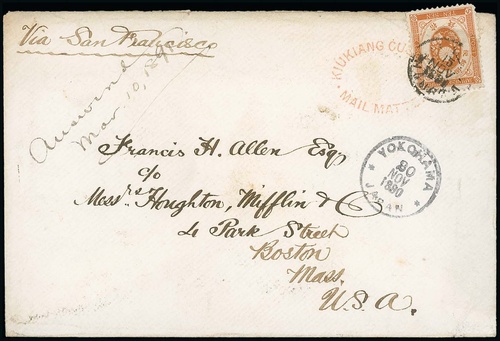 Via San Francisco
Answered
Mar. 10, 189
KIUKIANG CU
MAIL MATTE
YOKOHAMA
30
NOV
1890
JAPAN
Francis H. Allen Esq.
c/o
Messrs. Houghton, Mifflin & Co
4 Park Street
Boston
Mass.
U.S.A.